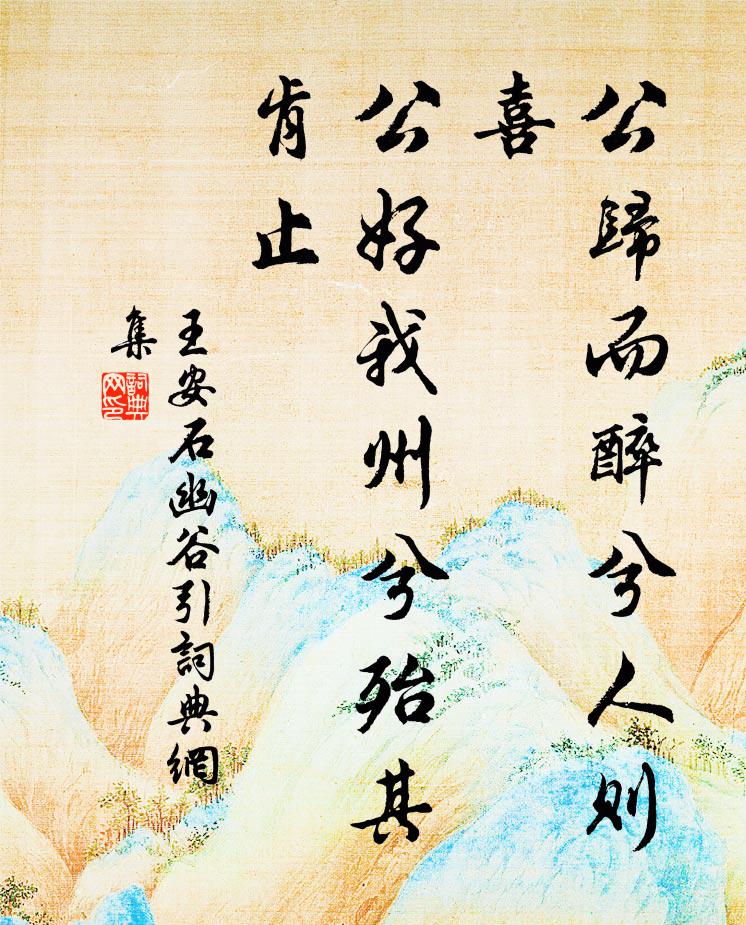 公歸而醉兮人則
喜
公好我州兮殆其
肯止
王安石幽谷引詞典網
集
詞典
網印